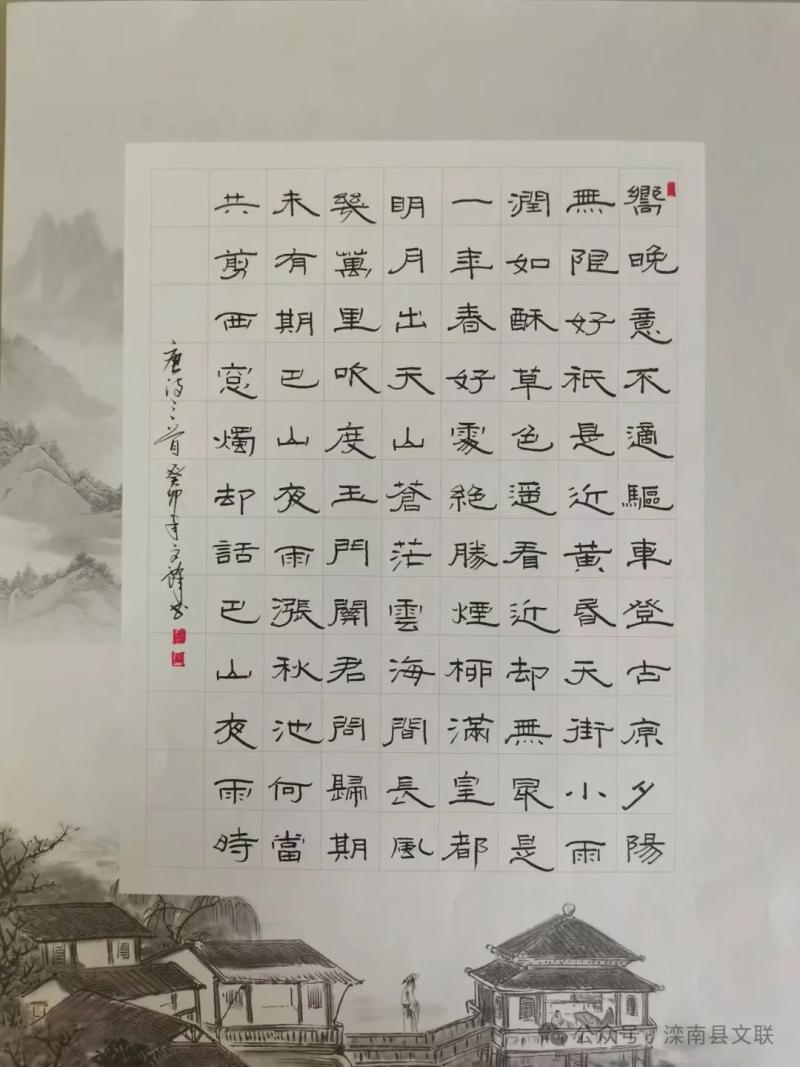 嚮晚意不適驅車登古原夕陽
無限好衹是近黃昏天街小雨
潤如酥草色遥看近却無冣是
一年春好處絕勝煙柳滿皇都
明月出天山蒼茫雲海間長風
幾萬里吹度玉門關君問歸期
未有期巴山夜雨漲秋池何當
共剪西窗燭却話巴山夜雨時
唐诗三首癸卯年文书
公众号·滦南县文联